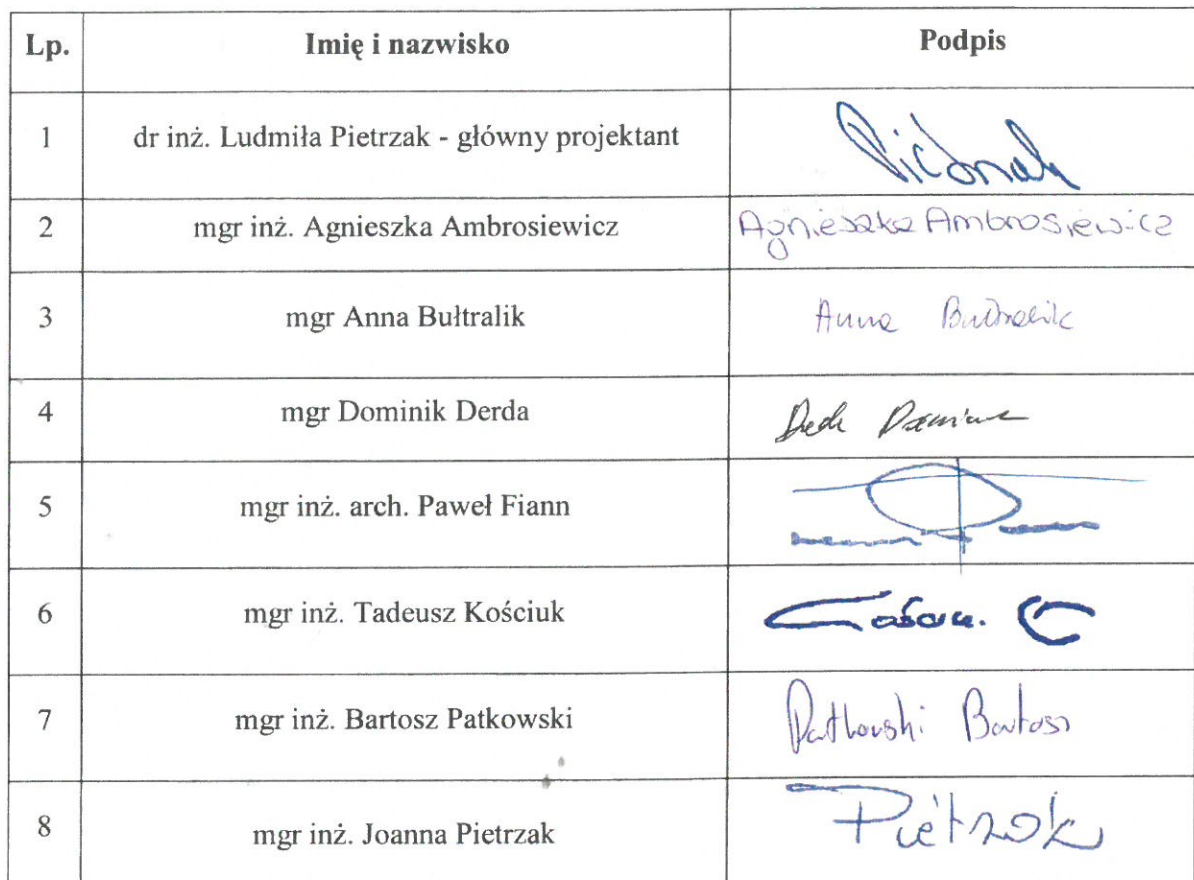 Lp. Imię i nazwisko Podpis
1 dr inż. Ludmiła Pietrzak - główny projektant
2 mgr inż. Agnieszka Ambrosiewicz Agnieszka Ambrosiewicz
3 mgr Anna Bułtralik Anna Bułtralik
4 mgr Dominik Derda
5 mgr inż. arch. Paweł Fiann
6 mgr inż. Tadeusz Kościuk
7 mgr inż. Bartosz Patkowski Patkowski Bartosz
8 mgr inż. Joanna Pietrzak Pietrzak